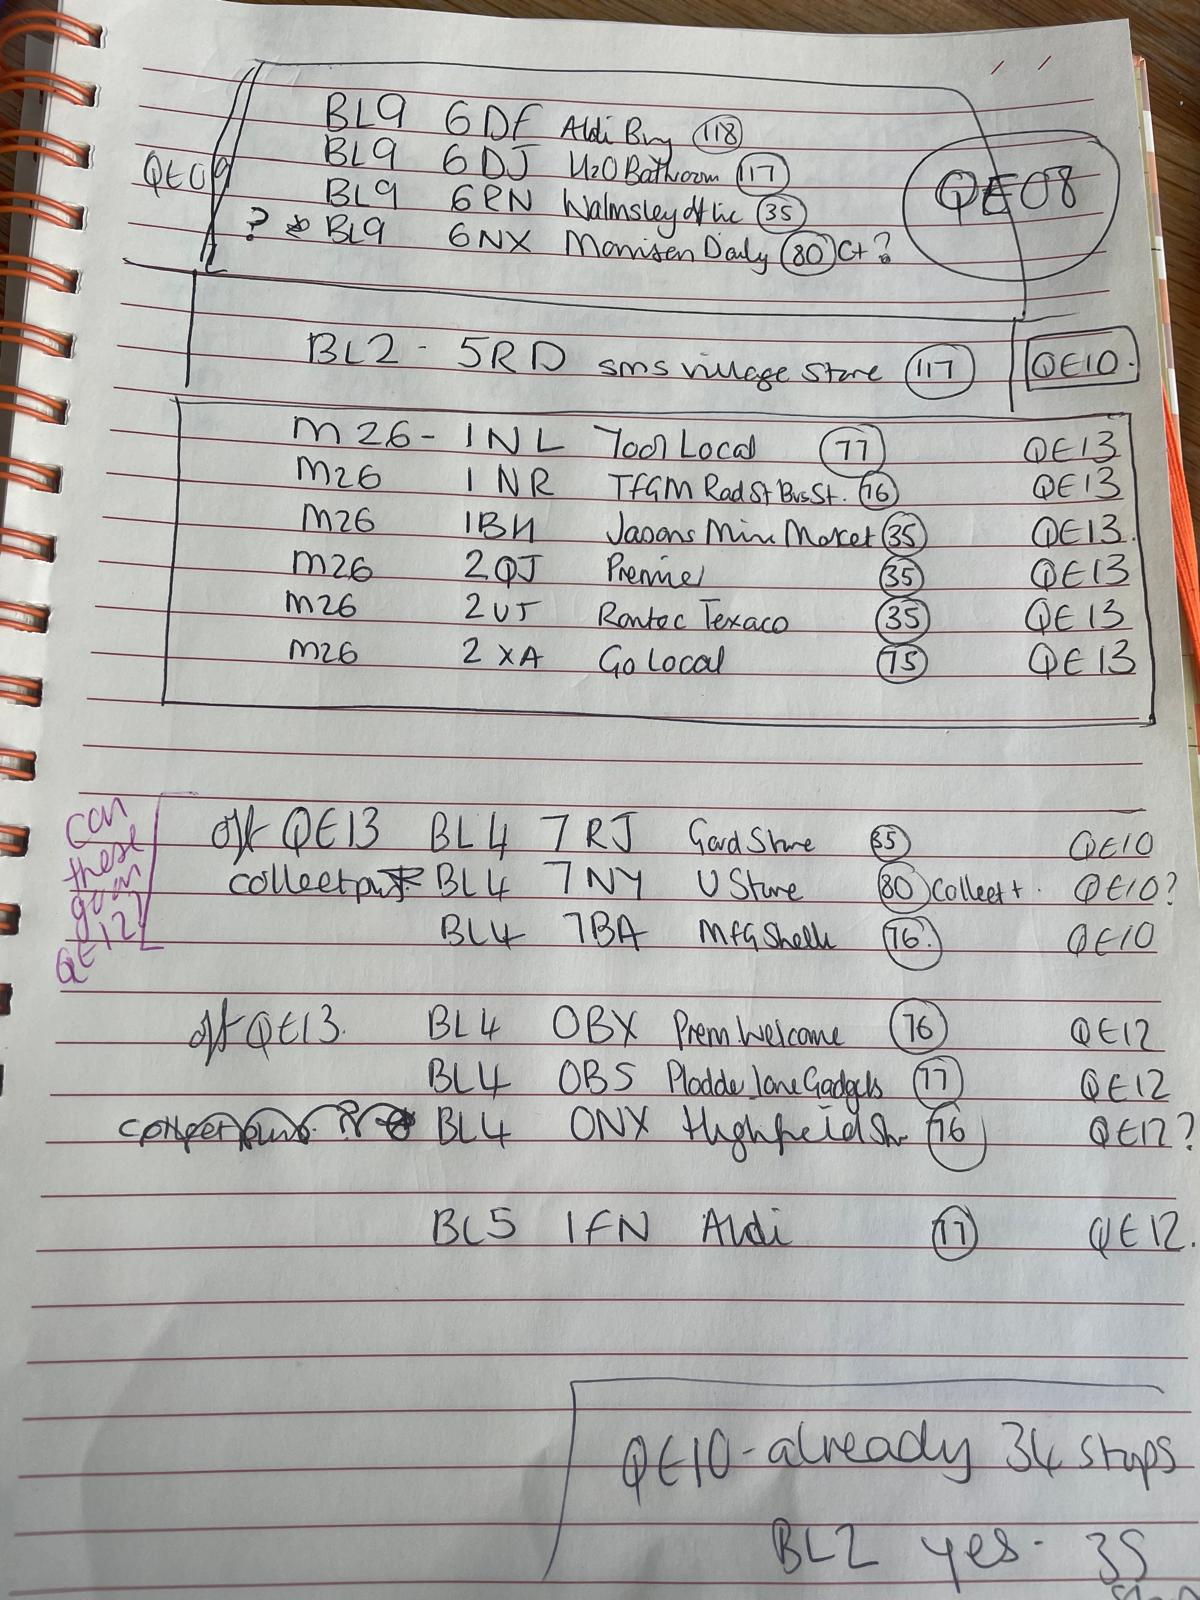 BL9 6DF Aldi Bury 118
BL9 6DJ H2O Bathroom 117
QE09 BL9 6RN Walmsley off lic 35 QE08
? BL9 6NX Morrisen Daily 80 C+?
BL2 - 5RD sms village store 117 QE10.
M26 - 1NL Tool Local 77 QE13
M26 1NR TfGM Rad St Bus St. 76 QE13
M26 1BH Jasons Mini Market 35 QE13.
M26 2QJ Premier 35 QE13
M26 2UT Rontec Texaco 35 QE13
M26 2XA Go Local 75 QE13
can these go on QE12?
off QE13 BL4 7RJ Gard Store 35 QE10
collect plus BL4 7NY U Store 80 Collect +. QE10?
BL4 7BA MFG Shell 76. QE10
off QE13. BL4 0BX Prem. Welcome 76 QE12
BL4 0BS Plodder Lane Gadgets 77 QE12
BL4 0NX Highfield Str 76 QE12?
BL5 1FN Aldi 77 QE12.
QE10 - already 34 stops
BL2 yes - 35